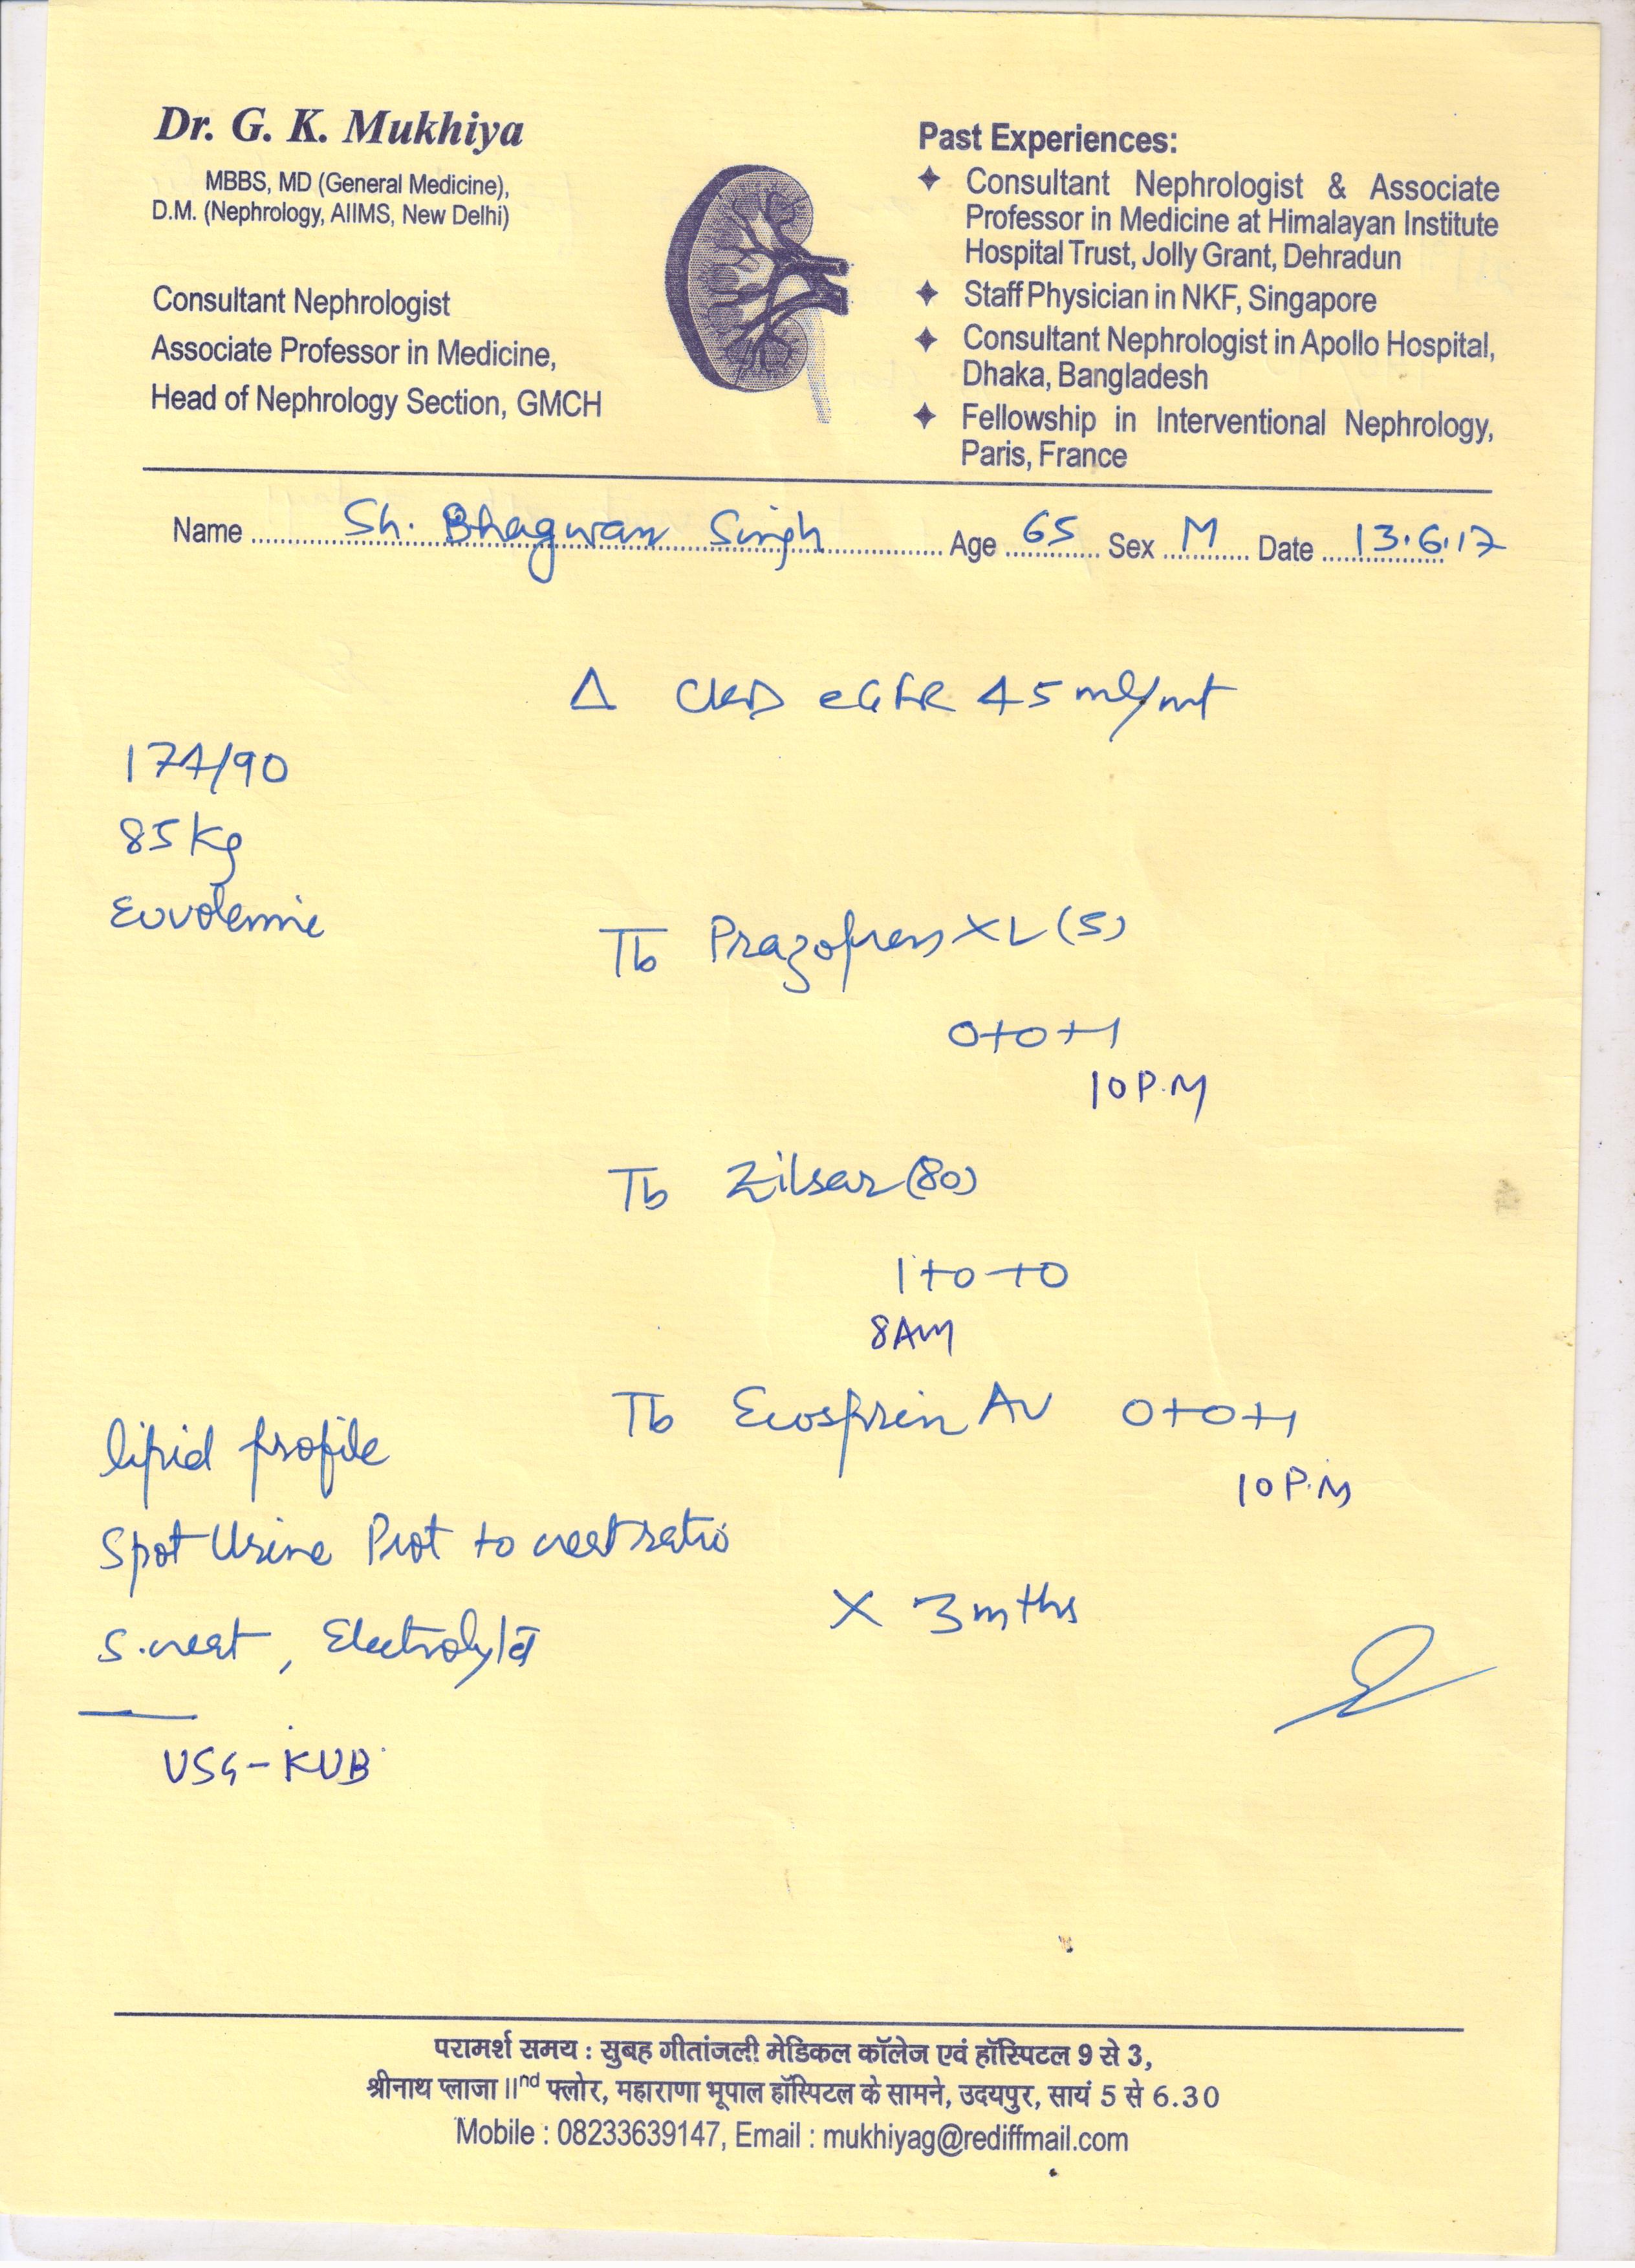 Dr. G. K. Mukhiya
MBBS, MD (General Medicine),
D.M. (Nephrology, AIIMS, New Delhi)
Consultant Nephrologist
Associate Professor in Medicine,
Head of Nephrology Section, GMCH
Past Experiences:
Consultant Nephrologist & Associate
Professor in Medicine at Himalayan Institute
Hospital Trust, Jolly Grant, Dehradun
Staff Physician in NKF, Singapore
Consultant Nephrologist in Apollo Hospital,
Dhaka, Bangladesh
Fellowship in Interventional Nephrology,
Paris, France
Name Sh. Bhagwan Singh Age 65 Sex M Date 13.6.17
Δ CKD eGFR 45 ml/mt
174/90
85 kg
Euvolemic
Tb Prazopress XL (5)
0+0+1
10 P.M
Tb Zilsar (80)
1+0+0
8 AM
Tb Ecosprin AV 0+0+1
10 P.M
lipid profile
Spot Urine Prot to creat ratio
S. creat, Electrolyte
x 3 mths
USG-KUB
परामर्श समय : सुबह गीतांजली मेडिकल कॉलेज एवं हॉस्पिटल 9 से 3,
श्रीनाथ प्लाजा IInd फ्लोर, महाराणा भूपाल हॉस्पिटल के सामने, उदयपुर, सायं 5 से 6.30
Mobile : 08233639147, Email : mukhiyag@rediffmail.com